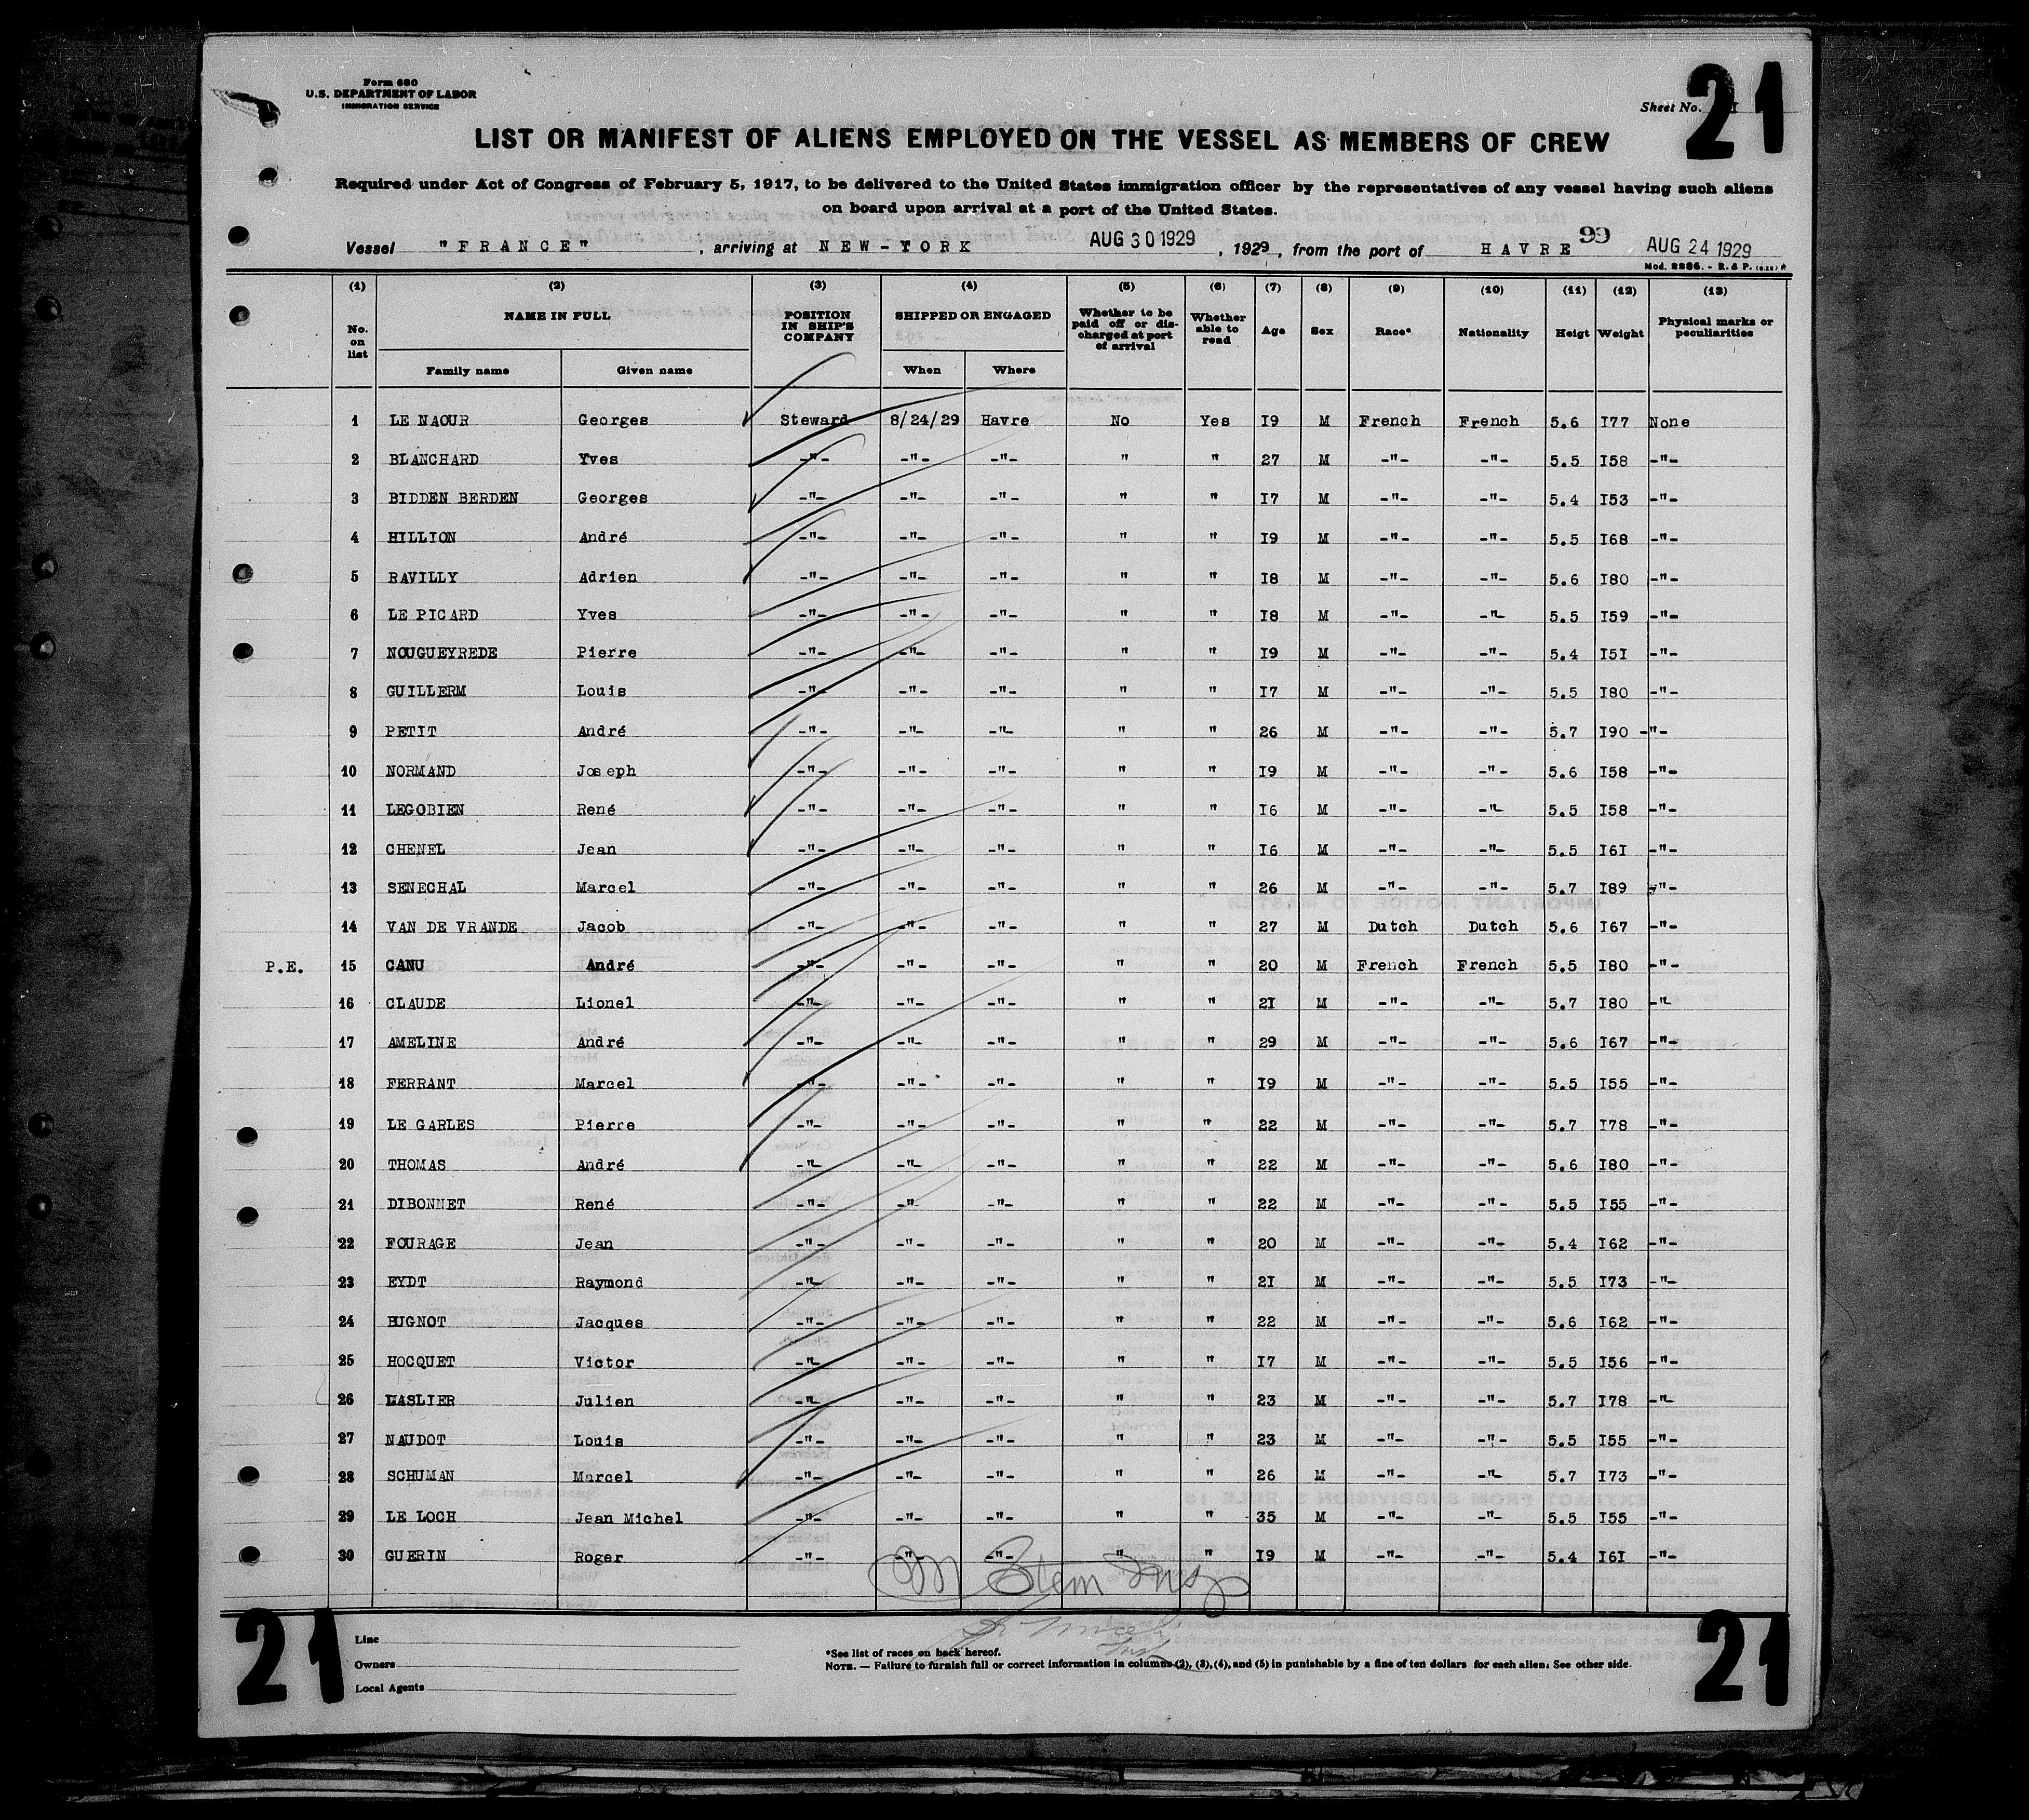 Form 680
U.S. DEPARTMENT OF LABOR
IMMIGRATION SERVICE
Sheet No.
21
LIST OR MANIFEST OF ALIENS EMPLOYED ON THE VESSEL AS MEMBERS OF CREW
Required under Act of Congress of February 5, 1917, to be delivered to the United States immigration officer by the representatives of any vessel having such aliens
on board upon arrival at a port of the United States.
Vessel "FRANCE", arriving at NEW-YORK AUG 30 1929, 1929, from the port of HAVRE 99 AUG 24 1929
Mod. 2286. - R. & P.
(1) (2) (3) (4) (5) (6) (7) (8) (9) (10) (11) (12) (13)
No. on list NAME IN FULL Family name Given name POSITION IN SHIP'S COMPANY SHIPPED OR ENGAGED When Where Whether to be paid off or discharged at port of arrival Whether able to read Age Sex Race* Nationality Heigt Weight Physical marks or peculiarities
1 LE NAOUR Georges Steward 8/24/29 Havre No Yes I9 M French French 5.6 I77 None
2 BLANCHARD Yves -"- -"- -"- " " 27 M -"- -"- 5.5 I58 -"-
3 BIDDEN BERDEN Georges -"- -"- -"- " " I7 M -"- -"- 5.4 I53 -"-
4 HILLION André -"- -"- -"- " " I9 M -"- -"- 5.5 I68 -"-
5 RAVILLY Adrien -"- -"- -"- " " I8 M -"- -"- 5.6 I80 -"-
6 LE PICARD Yves -"- -"- -"- " " I8 M -"- -"- 5.5 I59 -"-
7 NOUGUEYREDE Pierre -"- -"- -"- " " I9 M -"- -"- 5.4 I5I -"-
8 GUILLERM Louis -"- -"- -"- " " I7 M -"- -"- 5.5 I80 -"-
9 PETIT André -"- -"- -"- " " 26 M -"- -"- 5.7 I90 -"-
10 NORMAND Joseph -"- -"- -"- " " I9 M -"- -"- 5.6 I58 -"-
11 LEGOBIEN René -"- -"- -"- " " I6 M -"- -"- 5.5 I58 -"-
12 CHENEL Jean -"- -"- -"- " " I6 M -"- -"- 5.5 I6I -"-
13 SENECHAL Marcel -"- -"- -"- " " 26 M -"- -"- 5.7 I89 -"-
14 VAN DE VRANDE Jacob -"- -"- -"- " " 27 M Dutch Dutch 5.6 I67 -"-
P.E. 15 CANU André -"- -"- -"- " " 20 M French French 5.5 I80 -"-
16 CLAUDE Lionel -"- -"- -"- " " 2I M -"- -"- 5.7 I80 -"-
17 AMELINE André -"- -"- -"- " " 29 M -"- -"- 5.6 I67 -"-
18 FERRANT Marcel -"- -"- -"- " " I9 M -"- -"- 5.5 I55 -"-
19 LE GARLES Pierre -"- -"- -"- " " 22 M -"- -"- 5.7 I78 -"-
20 THOMAS André -"- -"- -"- " " 22 M -"- -"- 5.6 I80 -"-
21 DIBONNET René -"- -"- -"- " " 22 M -"- -"- 5.5 I55 -"-
22 FOURAGE Jean -"- -"- -"- " " 20 M -"- -"- 5.4 I62 -"-
23 EYDT Raymond -"- -"- -"- " " 2I M -"- -"- 5.5 I73 -"-
24 BUGNOT Jacques -"- -"- -"- " " 22 M -"- -"- 5.6 I62 -"-
25 HOCQUET Victor -"- -"- -"- " " I7 M -"- -"- 5.5 I56 -"-
26 DASLIER Julien -"- -"- -"- " " 23 M -"- -"- 5.7 I78 -"-
27 NAUDOT Louis -"- -"- -"- " " 23 M -"- -"- 5.5 I55 -"-
28 SCHUMAN Marcel -"- -"- -"- " " 26 M -"- -"- 5.7 I73 -"-
29 LE LOCH Jean Michel -"- -"- -"- " " 35 M -"- -"- 5.5 I55 -"-
30 GUERIN Roger -"- -"- -"- " " I9 M -"- -"- 5.4 I6I -"-
Stern Insp
21
21
Line
Owners
Local Agents
*See list of races on back hereof.
NOTE. — Failure to furnish full or correct information in columns (2), (3), (4), and (5) in punishable by a fine of ten dollars for each alien. See other side.